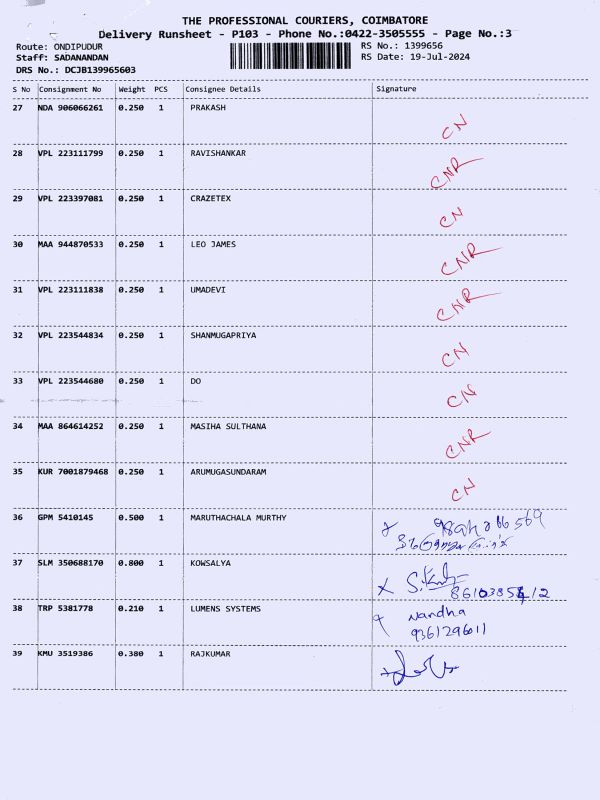 THE PROFESSIONAL COURIERS, COIMBATORE
Delivery Runsheet - P103 - Phone No.:0422-3505555 - Page No.:3
Route: ONDIPUDUR RS No.: 1399656
Staff: SADANANDAN RS Date: 19-Jul-2024
DRS No.: DCJB139965603
S No Consignment No Weight PCS Consignee Details Signature
27 NDA 906066261 0.250 1 PRAKASH
CN
28 VPL 223111799 0.250 1 RAVISHANKAR
CNR
29 VPL 223397081 0.250 1 CRAZETEX
CN
30 MAA 944870533 0.250 1 LEO JAMES
CNR
31 VPL 223111838 0.250 1 UMADEVI
CNR
32 VPL 223544834 0.250 1 SHANMUGAPRIYA
CN
33 VPL 223544680 0.250 1 DO
CN
34 MAA 864614252 0.250 1 MASIHA SULTHANA
CNR
35 KUR 7001879468 0.250 1 ARUMUGASUNDARAM
CN
36 GPM 5410145 0.500 1 MARUTHACHALA MURTHY
37 SLM 350688170 0.800 1 KOWSALYA
38 TRP 5381778 0.210 1 LUMENS SYSTEMS
Nandha
9361296011
39 KMU 3519386 0.380 1 RAJKUMAR